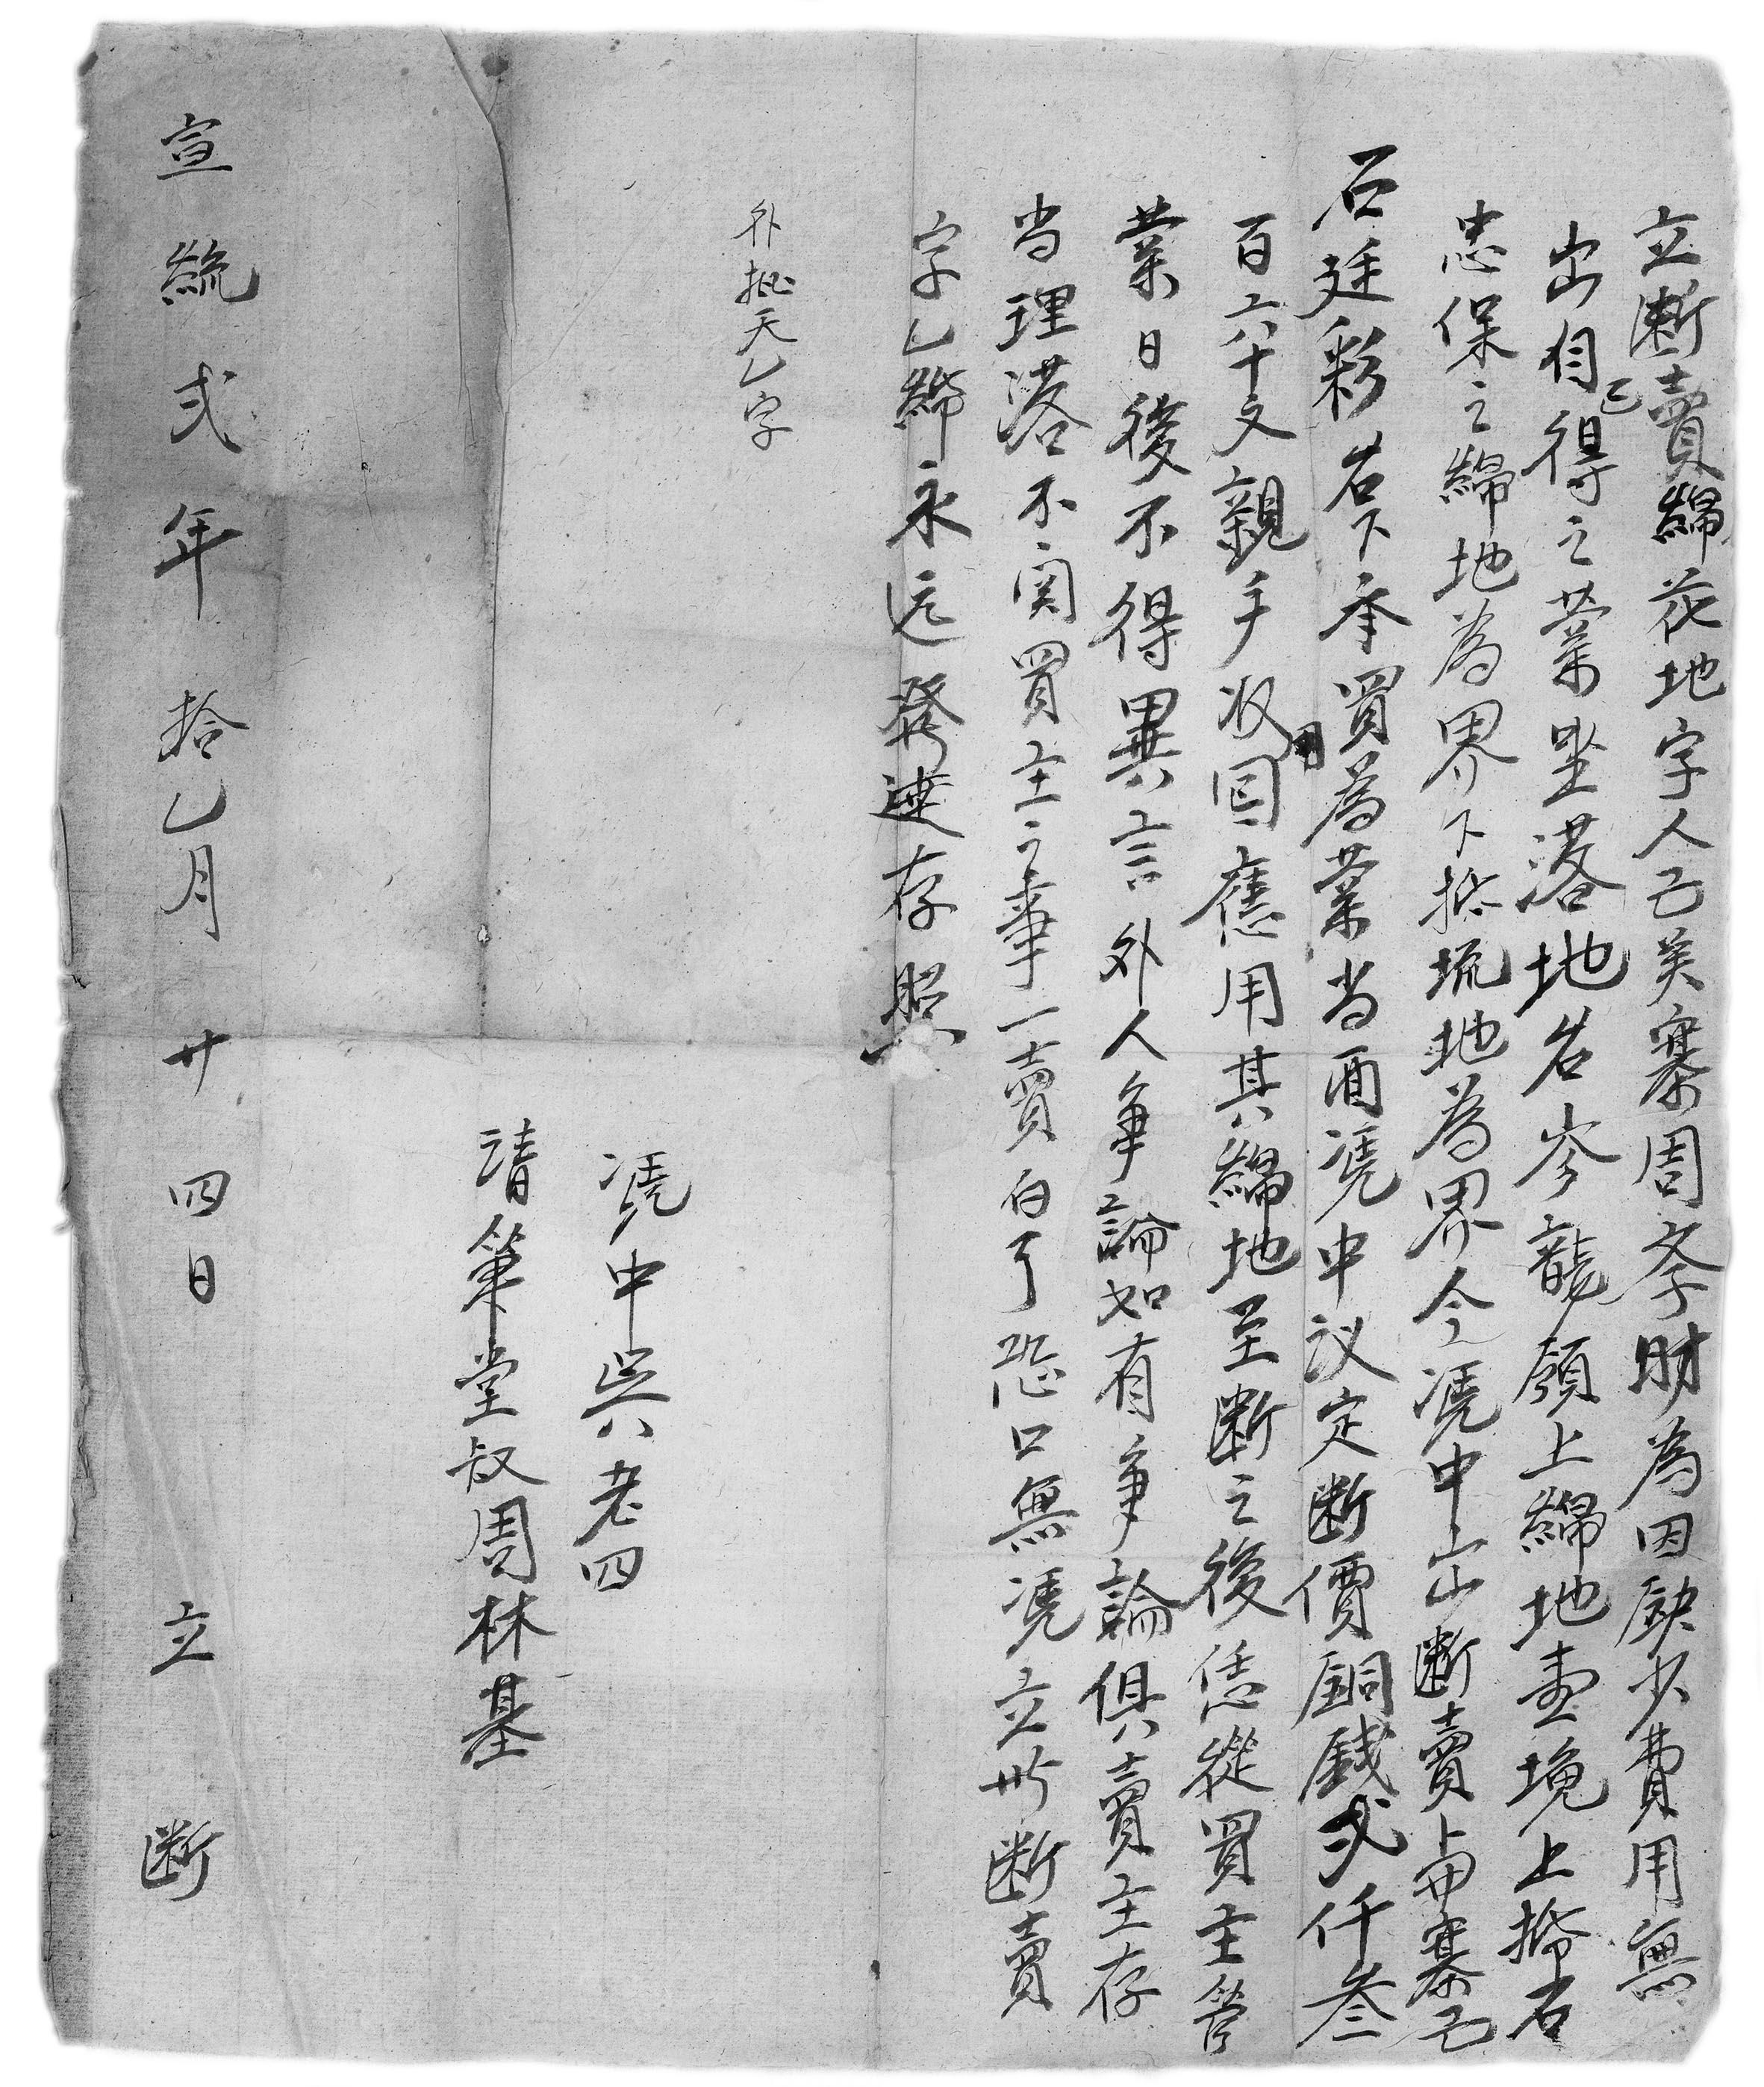 立断賣綿花地字人己美寨周李財為因缺少費用無
出自己得之業坐落地名岑龍領上綿地壹塊上抵石
忠保之綿地為界下抵坑地為界今凭中出断賣与寨
石廷彩名下承買為業当面凭中议定断價銅錢弍仟叁
百六十文親手收回應用其綿地至断之後恁從買主管
業日後不得異言外人争論如有争論俱賣主存
当理落不関買主之事一賣白了恐口無凭立此断賣
字乙紙永远發達存照
外批天乙字
凭中吳老四
請筆堂叔周林基
宣統弍年拾乙月廿四日 立 断